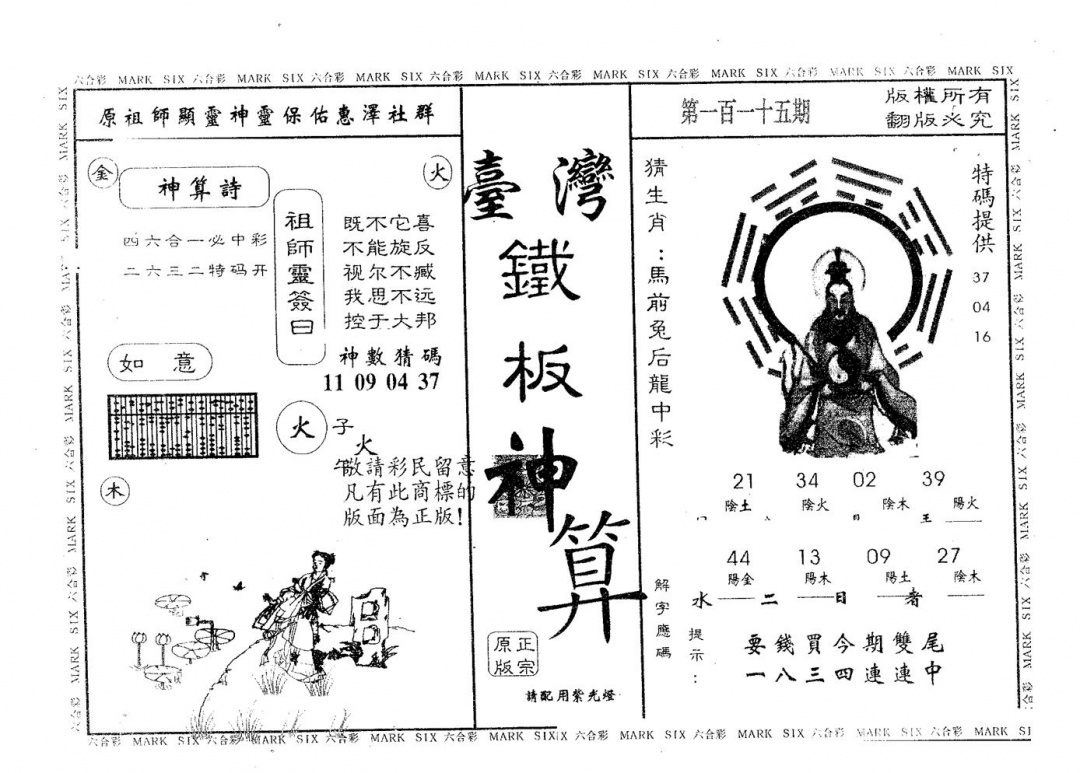 六合彩 MARK SIX 六合彩 MARK SIX 六合彩 MARK SIX 六合彩 MARK SIX 六合彩 MARK SIX 六合彩 MARK SIX 六合彩 MARK SIX 六合彩 MARK SIX
原祖師顯靈神靈保佑惠澤社群
金
火
神算詩
四六合一必中彩
二六三二特码开
祖師靈簽曰
既不它喜
不能旋反
视尔不臧
我思不远
控于大邦
神數猜碼
11 09 04 37
如意
火
子
火
午
敬請彩民留意
凡有此商標的
版面為正版!
木
臺灣
鐵
板
神
算
正宗
原版
請配用紫光燈
第一百一十五期
版權所有
翻版必究
猜生肖:馬前兔后龍中彩
特碼提供
37
04
16
21 34 02 39
陰土 陰火 陰木 陽火
44 13 09 27
陽金 陽木 陽土 陰木
解字應碼
水 二 日 者
提示:
要錢買今期雙尾
一八三四連連中
六合彩 MARK SIX 六合彩 MARK SIX 六合彩 MARK SIX 六合彩 MARK SIX 六合彩 MARK SIX 六合彩 MARK SIX 六合彩 MARK SIX 六合彩 MARK SI